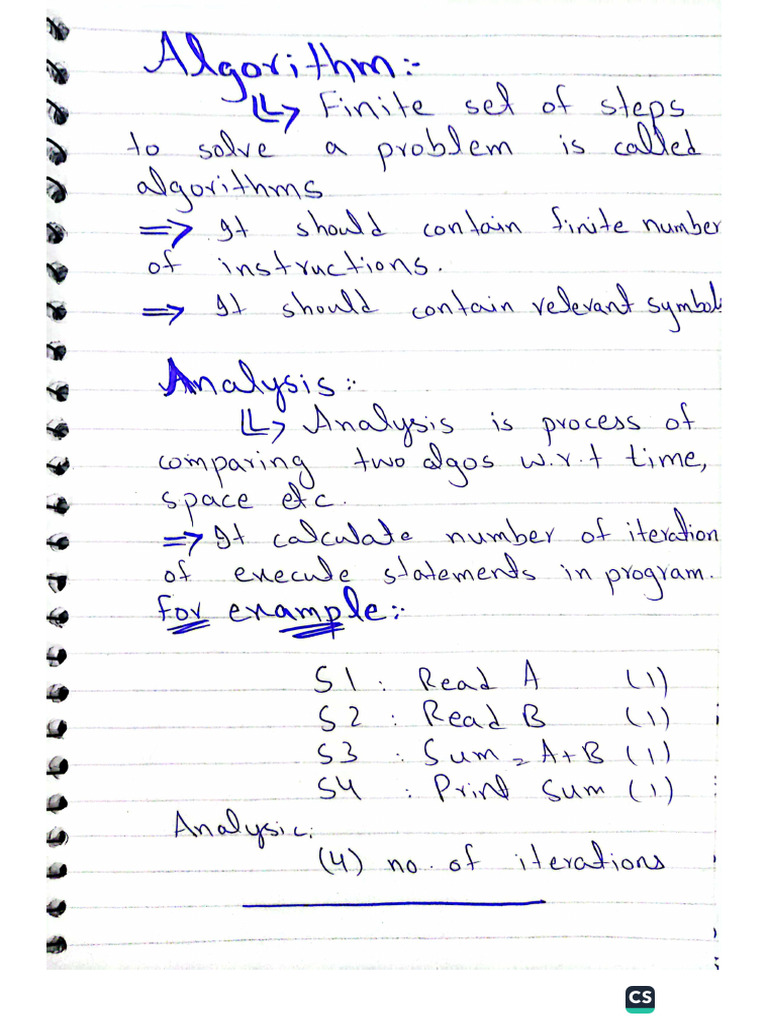 Algorithm:-
Finite set of steps
to solve a problem is called
algorithms
=> It should contain finite number
of instructions.
=> It should contain relevant symbols
Analysis:-
Analysis is process of
comparing two algos w.r.t time,
space etc.
=> It calculate number of iteration
of execute statements in program.
for example:-
S1 : Read A (1)
S2 : Read B (1)
S3 : Sum = A+B (1)
S4 : Print Sum (1)
Analysis:
(4) no. of iterations
CS